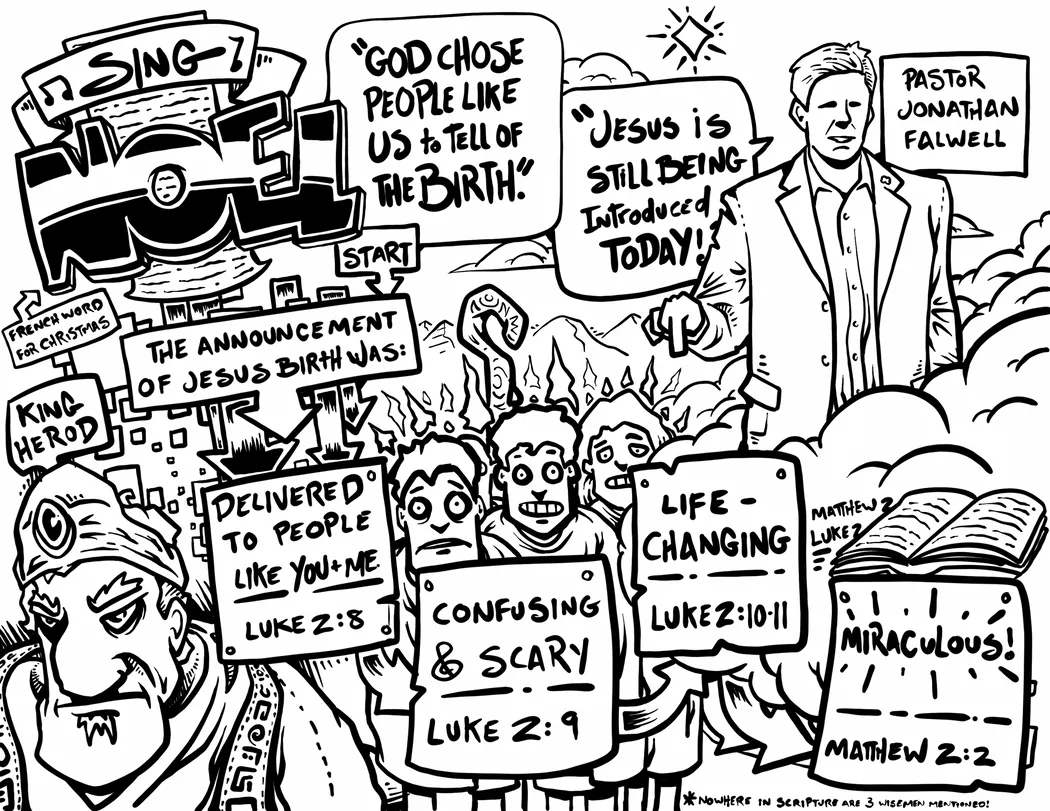 SING
NOEL
"GOD CHOSE
PEOPLE LIKE
US to TELL OF
THE BIRTH."
"JESUS iS
STILL BEING
INTRODUCED
TODAY!"
PASTOR
JONATHAN
FALWELL
START
FRENCH WORD
FOR CHRISTMAS
THE ANNOUNCEMENT
OF JESUS BIRTH WAS:
KING
HEROD
DELIVERED
TO PEOPLE
LIKE YOU+ME
LUKE 2:8
CONFUSING
& SCARY
LUKE 2:9
LIFE-
CHANGING
LUKE 2:10-11
MATTHEW 2
LUKE 2
MIRACULOUS!
MATTHEW 2:2
*NOWHERE IN SCRIPTURE ARE 3 WISEMEN MENTIONED!